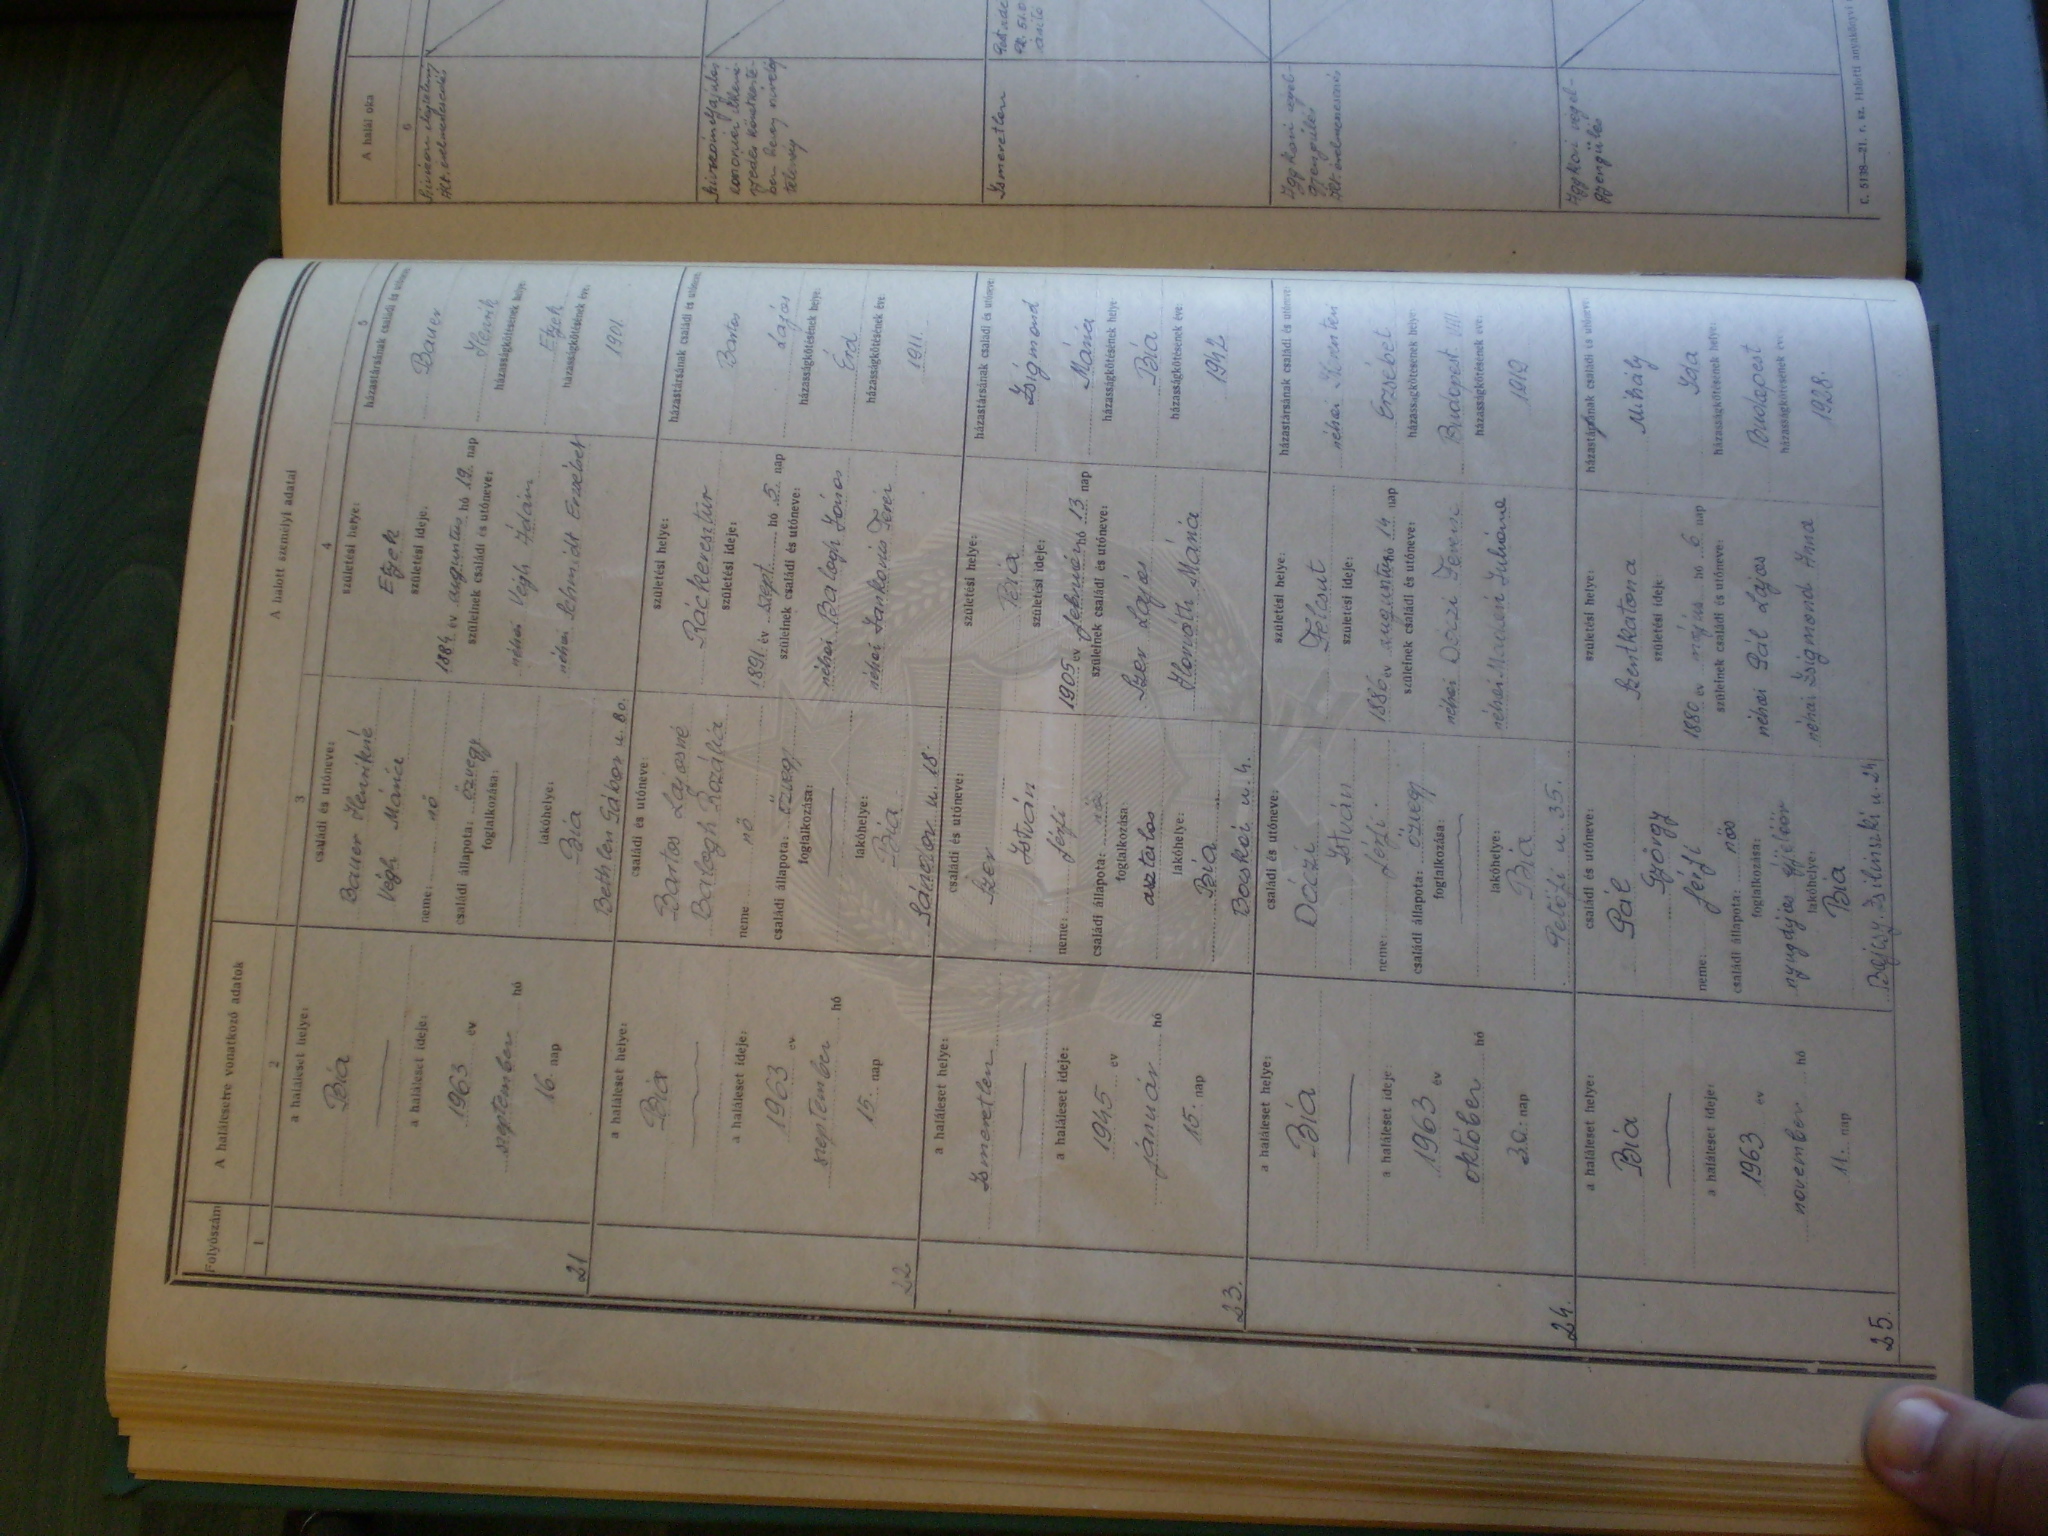 Folyószám
A halálesetre vonatkozó adatok
A halott személyi adatai
1
2
3
4
5
a haláleset helye:
Bia
a haláleset ideje:
1963 év
szeptember hó
16. nap
21
családi és utóneve:
Bauer Henrikné
Végh Mária
neme: nő
családi állapota: özvegy
foglalkozása:
lakóhelye:
Bia
Bethlen Gábor u. 80.
születési helye:
Etyek
születési ideje:
1884. év augusztus hó 19. nap
szüleinek családi és utóneve:
néhai Végh Ádám
néhai Schmidt Erzsébet
házastársának családi és utóneve:
Bauer
Henrik
házasságkötésének helye:
Etyek
házasságkötésének éve:
1901
a haláleset helye:
Bia
a haláleset ideje:
1963 év
szeptember hó
15. nap
22
családi és utóneve:
Bartos Lajosné
Balogh Rozália
neme nő
családi állapota: özvegy
foglalkozása:
lakóhelye:
Bia
Sándor u. 18.
születési helye:
Ráckeresztúr
születési ideje:
1891. év szept. hó 5. nap
szüleinek családi és utóneve:
néhai Balogh János
néhai
házastársának családi és utóneve:
Bartos
Lajos
házasságkötésének helye:
Érd
házasságkötésének éve:
1911.
a haláleset helye:
Ismeretlen
a haláleset ideje:
1945 év
január hó
15. nap
23.
családi és utóneve:
Szer
István
neme: férfi
családi állapota: nős
foglalkozása
asztalos
lakóhelye:
Bia
Bocskai u. 4.
születési helye:
Bia
születési ideje:
1905 év február hó 13 nap
szüleinek családi és utóneve:
Szer Lajos
Horváth Mária
házastársának családi és utóneve:
Zsigmond
Mária
házasságkötésének helye
Bia
házasságkötésének éve:
1942
a haláleset helye:
Bia
a haláleset ideje:
1963 év
október hó
30. nap
24.
családi és utóneve:
Dóczi
István
neme: férfi
családi állapota: özvegy
foglalkozása:
lakóhelye:
Bia
Petőfi u. 35.
születési helye:
Felcsut
születési ideje:
1886 év augusztus hó 14 nap
szüleinek családi és utóneve:
néhai Dóczi Ferenc
néhai
házastársának családi és utóneve:
néhai
Erzsébet
házasságkötésének helye:
Budapest VIII
házasságkötésének éve:
1919
a haláleset helye:
Bia
a haláleset ideje:
1963 év
november hó
11. nap
25.
családi és utóneve:
Pál
György
neme: férfi
családi állapota: nős
foglalkozása:
nyugdíjas éjjeliőr
lakóhelye:
Bia
Bajcsy. Zsilinszki u. 24
születési helye:
Szentkatona
születési ideje
1880 év május hó 6 nap
szüleinek családi és utóneve:
néhai Pál Lajos
néhai Zsigmond Anna
házastársának családi és utóneve:
Mihály
Ida
házasságkötésének helye:
Budapest
házasságkötésének éve:
1928.
A halál oka
6
Szívizomelfajulás
Ismeretlen
Aggkori végel-
gyengülés
Aggkori végel-
gyengülés
C. 5138—21. r. sz. Halotti anyakönyvi